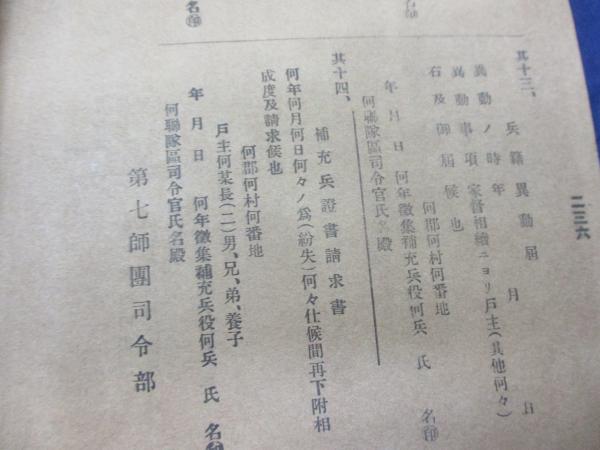 二三六
其十三、
兵籍異動届
異動ノ時年　月　日
異動事項家督相續ニヨリ戸主(其他何々)
右及御届候也
何郡何村何番地
年月日　何年徴集補充兵役何兵　氏　名㊞
何聯隊區司令官氏名殿
其十四、
補充兵證書請求書
何年何月何日何々ノ爲(紛失)何々仕候間再下附相
成度及請求候也
何郡何村何番地
戸主何某長(二)男、兄、弟、養子
年月日　何年徴集補充兵役何兵　氏　名㊞
何聯隊區司令官氏名殿
第七師團司令部
名㊞